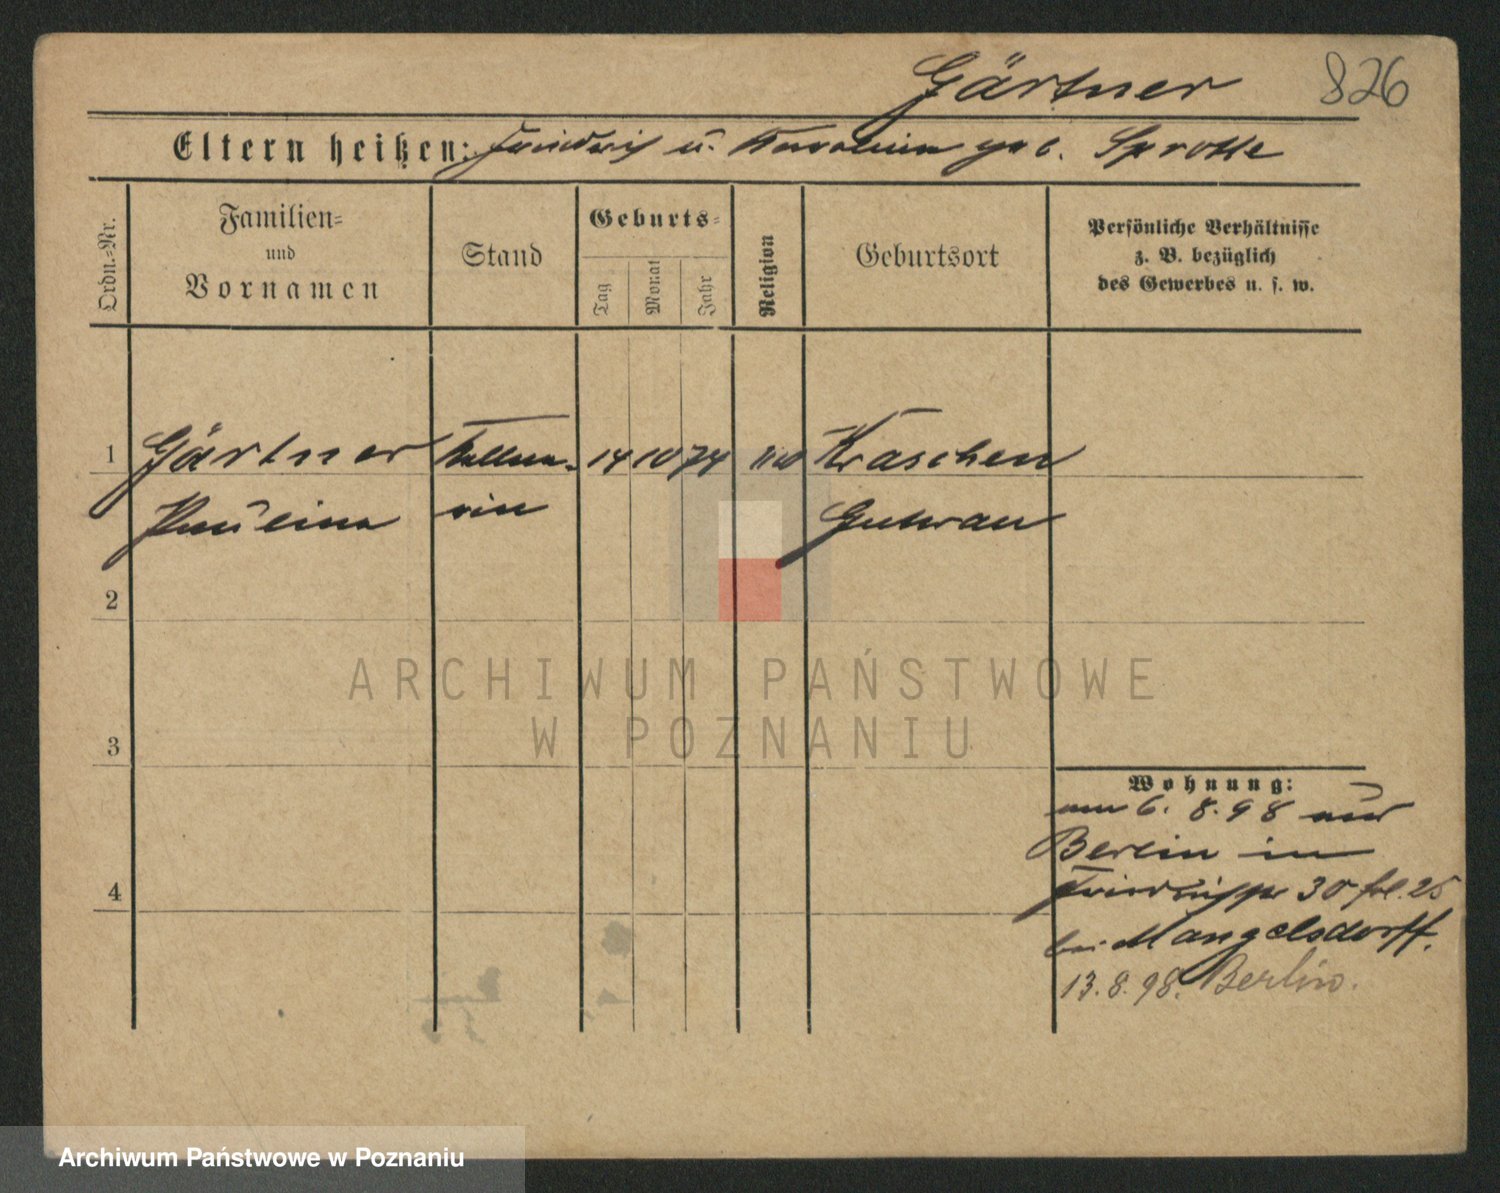 Gärtner 826
Eltern heißen: Friedrich u. Karoline geb. Sprotte
Ordn.-Nr.
Familien-
und
Vornamen
Stand
Geburts-
Tag
Monat
Jahr
Religion
Geburtsort
Persönliche Verhältnisse
z. B. bezüglich
des Gewerbes u. s. w.
1 Gärtner Kellne- 14 10 74 Kraschen
Paulina rin Guhrau
2
3
4
Wohnung:
am 6. 8. 98 aus
Berlin in
30 25
bei Mangelsdorff.
13. 8. 98. Berlin.
ARCHIWUM PAŃSTWOWE
W POZNANIU
Archiwum Państwowe w Poznaniu